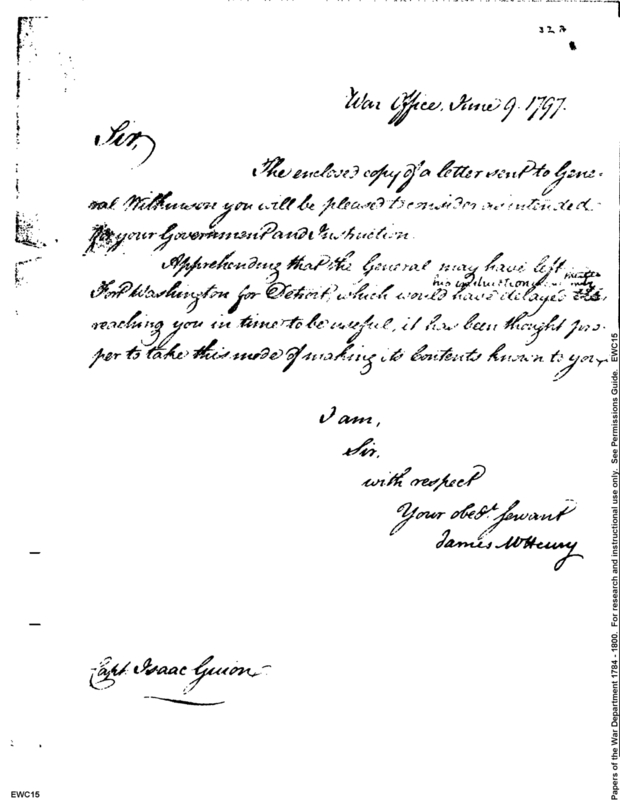 War Office. June 9. 1797.
Sir,
The enclosed copy of a letter sent to Gene-
ral Wilkinson you will be pleased to consider as intended
for your Government and Instruction.
Apprehending that the General may have left
his instructions
Fort Washington for Detroit, which would have delayed
reaching you in time to be useful, it has been thought pro-
per to take this mode of making its Contents known to you.
I am,
Sir,
with respect
Your obedt. Servant
James McHenry
Capt. Isaac Guion
EWC15
Papers of the War Department 1784 - 1800. For research and instructional use only. See Permissions Guide. EWC15